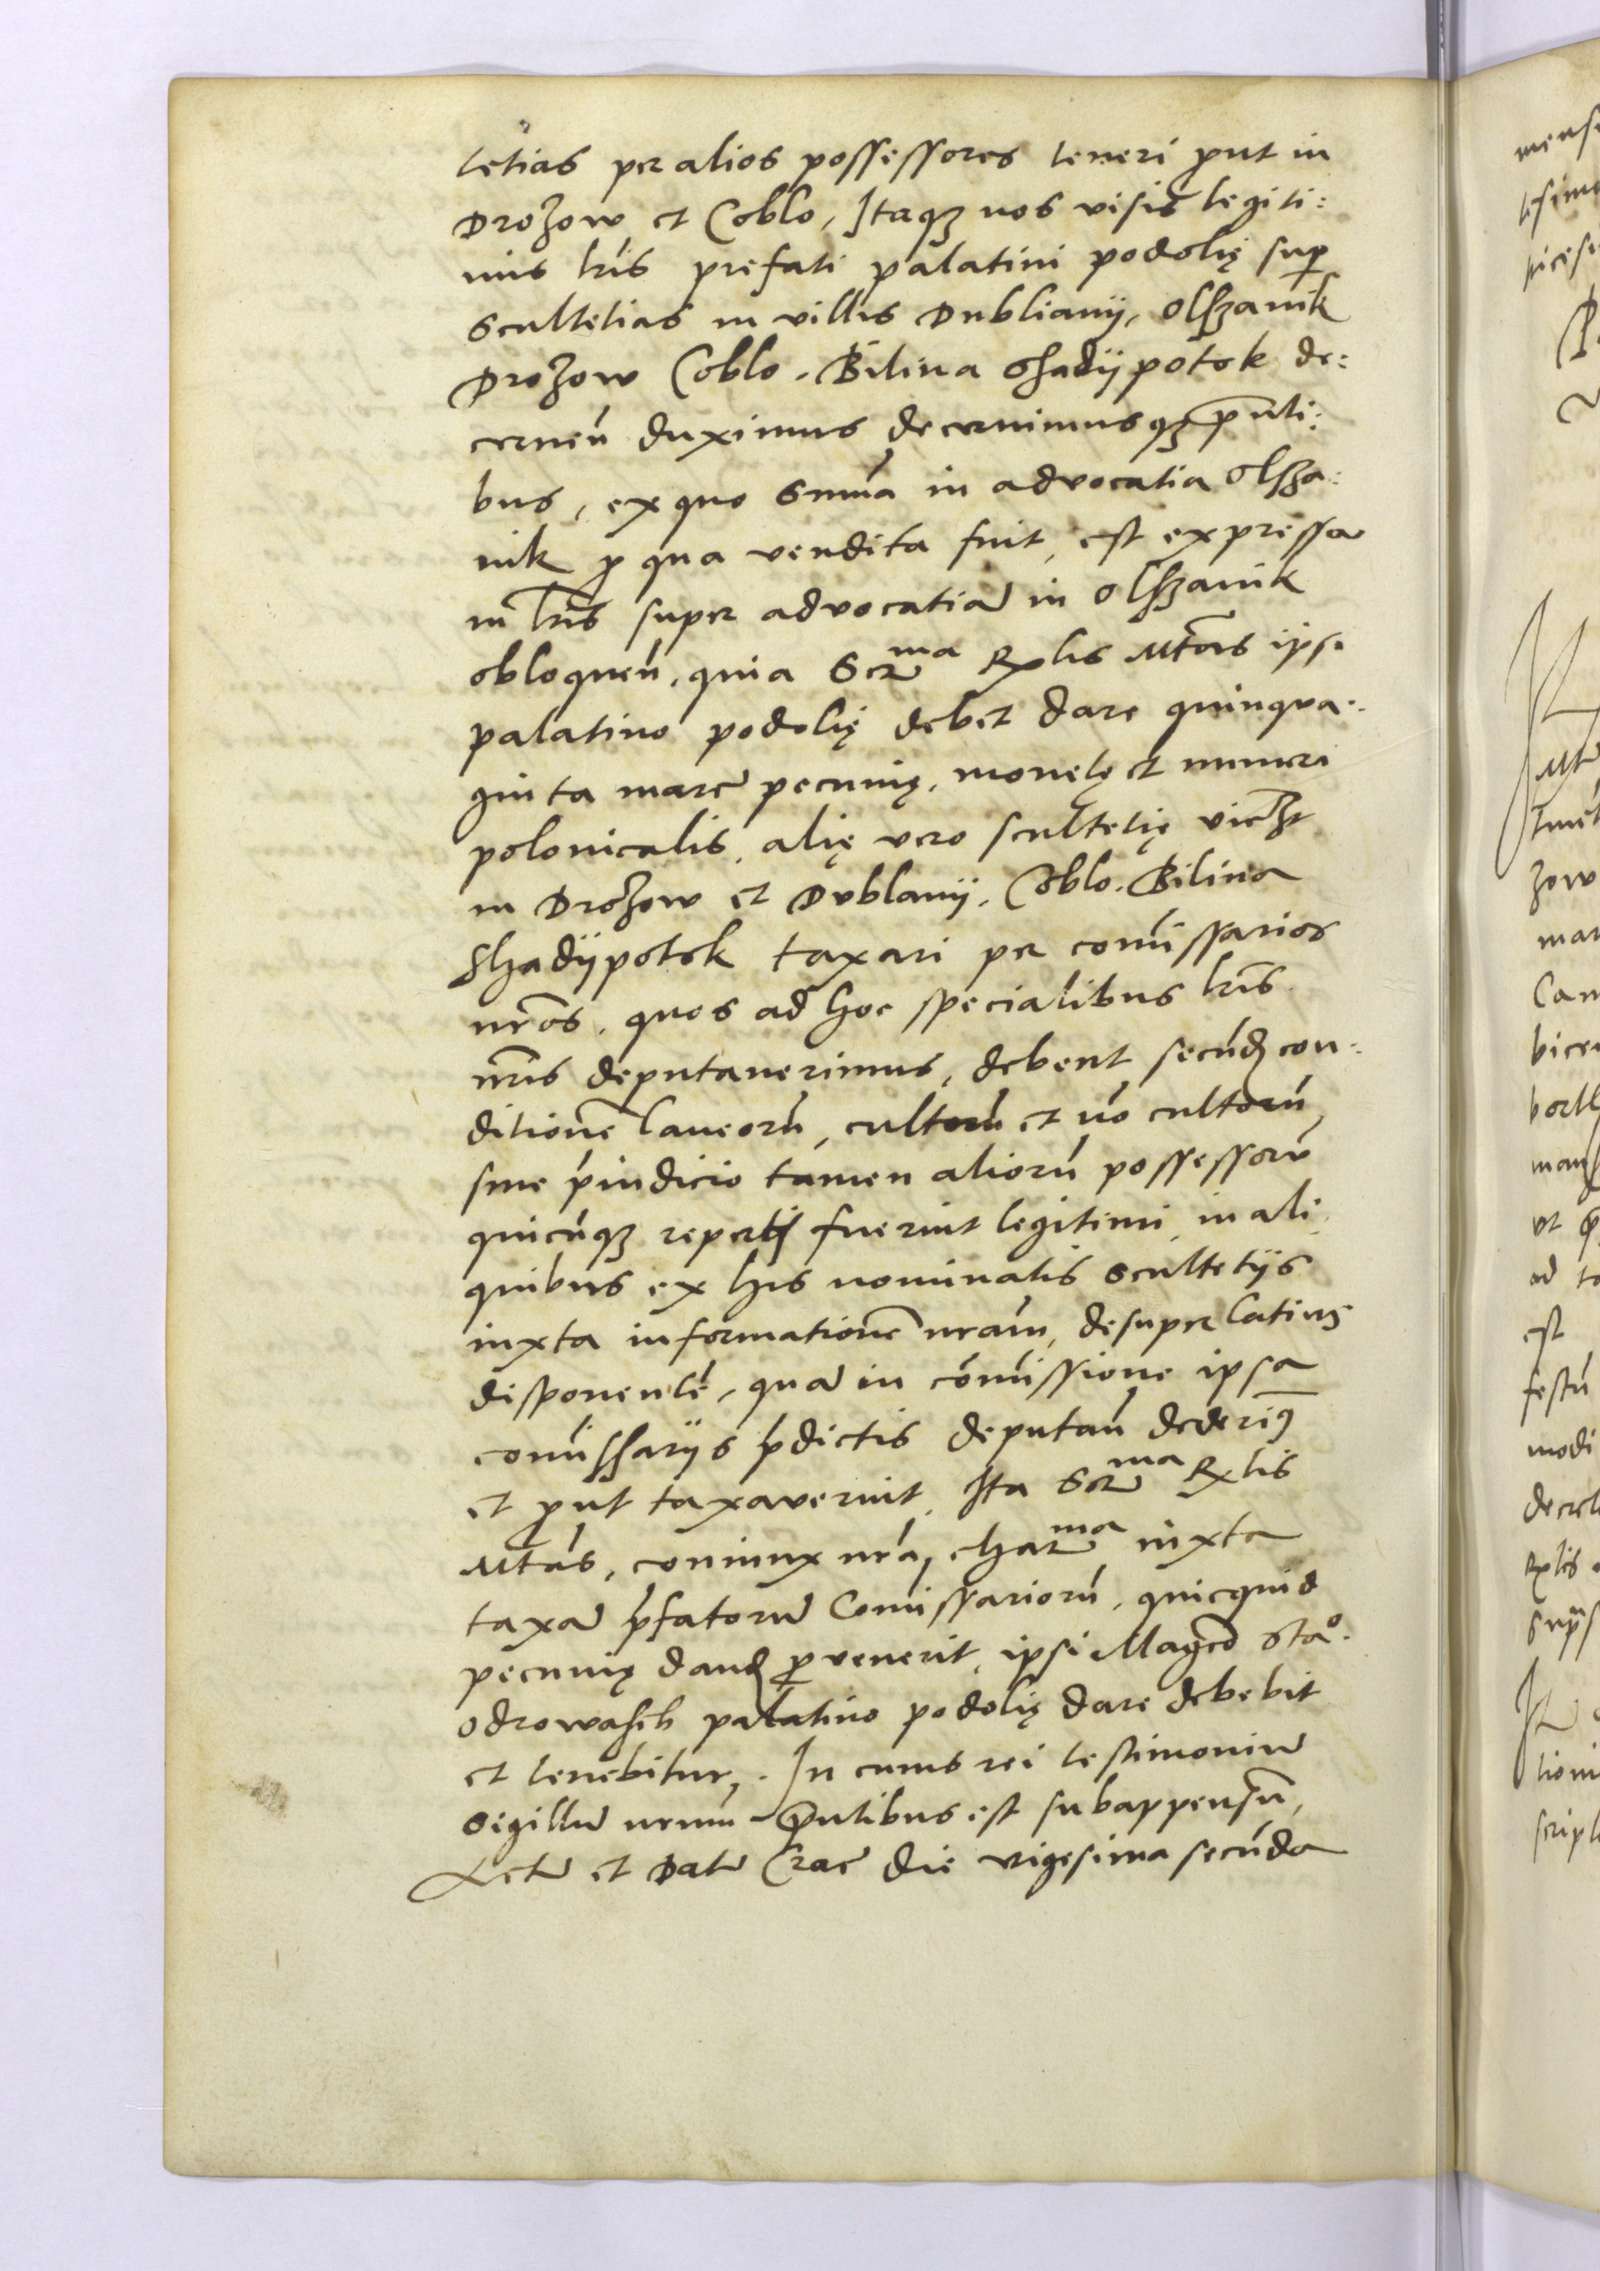 tetias per alios possessores teneri put in
Drozow et Coblo, Itaqȝ nos visis legiti:
mis lrīs prefati palatini podolię sup
Scultetias in villis Dublianij, Olssanik
Drozow Coblo. Bilina Ghadijpotok de:
cernen̄ duximus decernimusqȝ pn̄ti:
bus, ex quo Sum̄a in advocatia Olsza:
nik p qua vendita fuit, est expressa
in lrīs super advocatia in Olszanik
obloquen̄, quia Serma Rglis Mtās ipsi
palatino podolię debet dare quinqua:
ginta marc̄ pecunię, monetę et numeri
polonicalis, alię vero scultetię vicȝt
in Drozow et Dublanij, Coblo. Bilina
Ghadijpotok taxari per comīssarios
nrōs, quos ad hoc specialibus lrīs
nrīs deputaverimus, debent secūd con:
ditionē Laneorū, cultorū et nō cultorū,
sine piudicio tamen aliorū possessorū
quicūqȝ reperti fuerint legitimi, in ali:
quibus ex his nominatis Scultetijs
iuxta informationē nram, desuper latius
disponentē, quā in com̄issione ipsa
comīssarijs pdictis deputan̄ dederimꝰ
et put taxaverint, Ita Serma Rglis
Mtās, coniunx nrā, charma iuxta
taxā pfatorum Comīssariorū, quicquid
pecunię dand pvenerit, ipsi Magcō Stāo.
Odrowasch palatino podolię dare debebit
et tenebitur. In cuius rei testimoniū
Sigillū nrum pn̄tibus est subappensū,
Actū et Datū Crac̄ die vigesima secūda
mensi
tesimo
Mtē
zow
mar
bicer
ut
ad
est
festū
modi
decret
Rglis
tioni
script